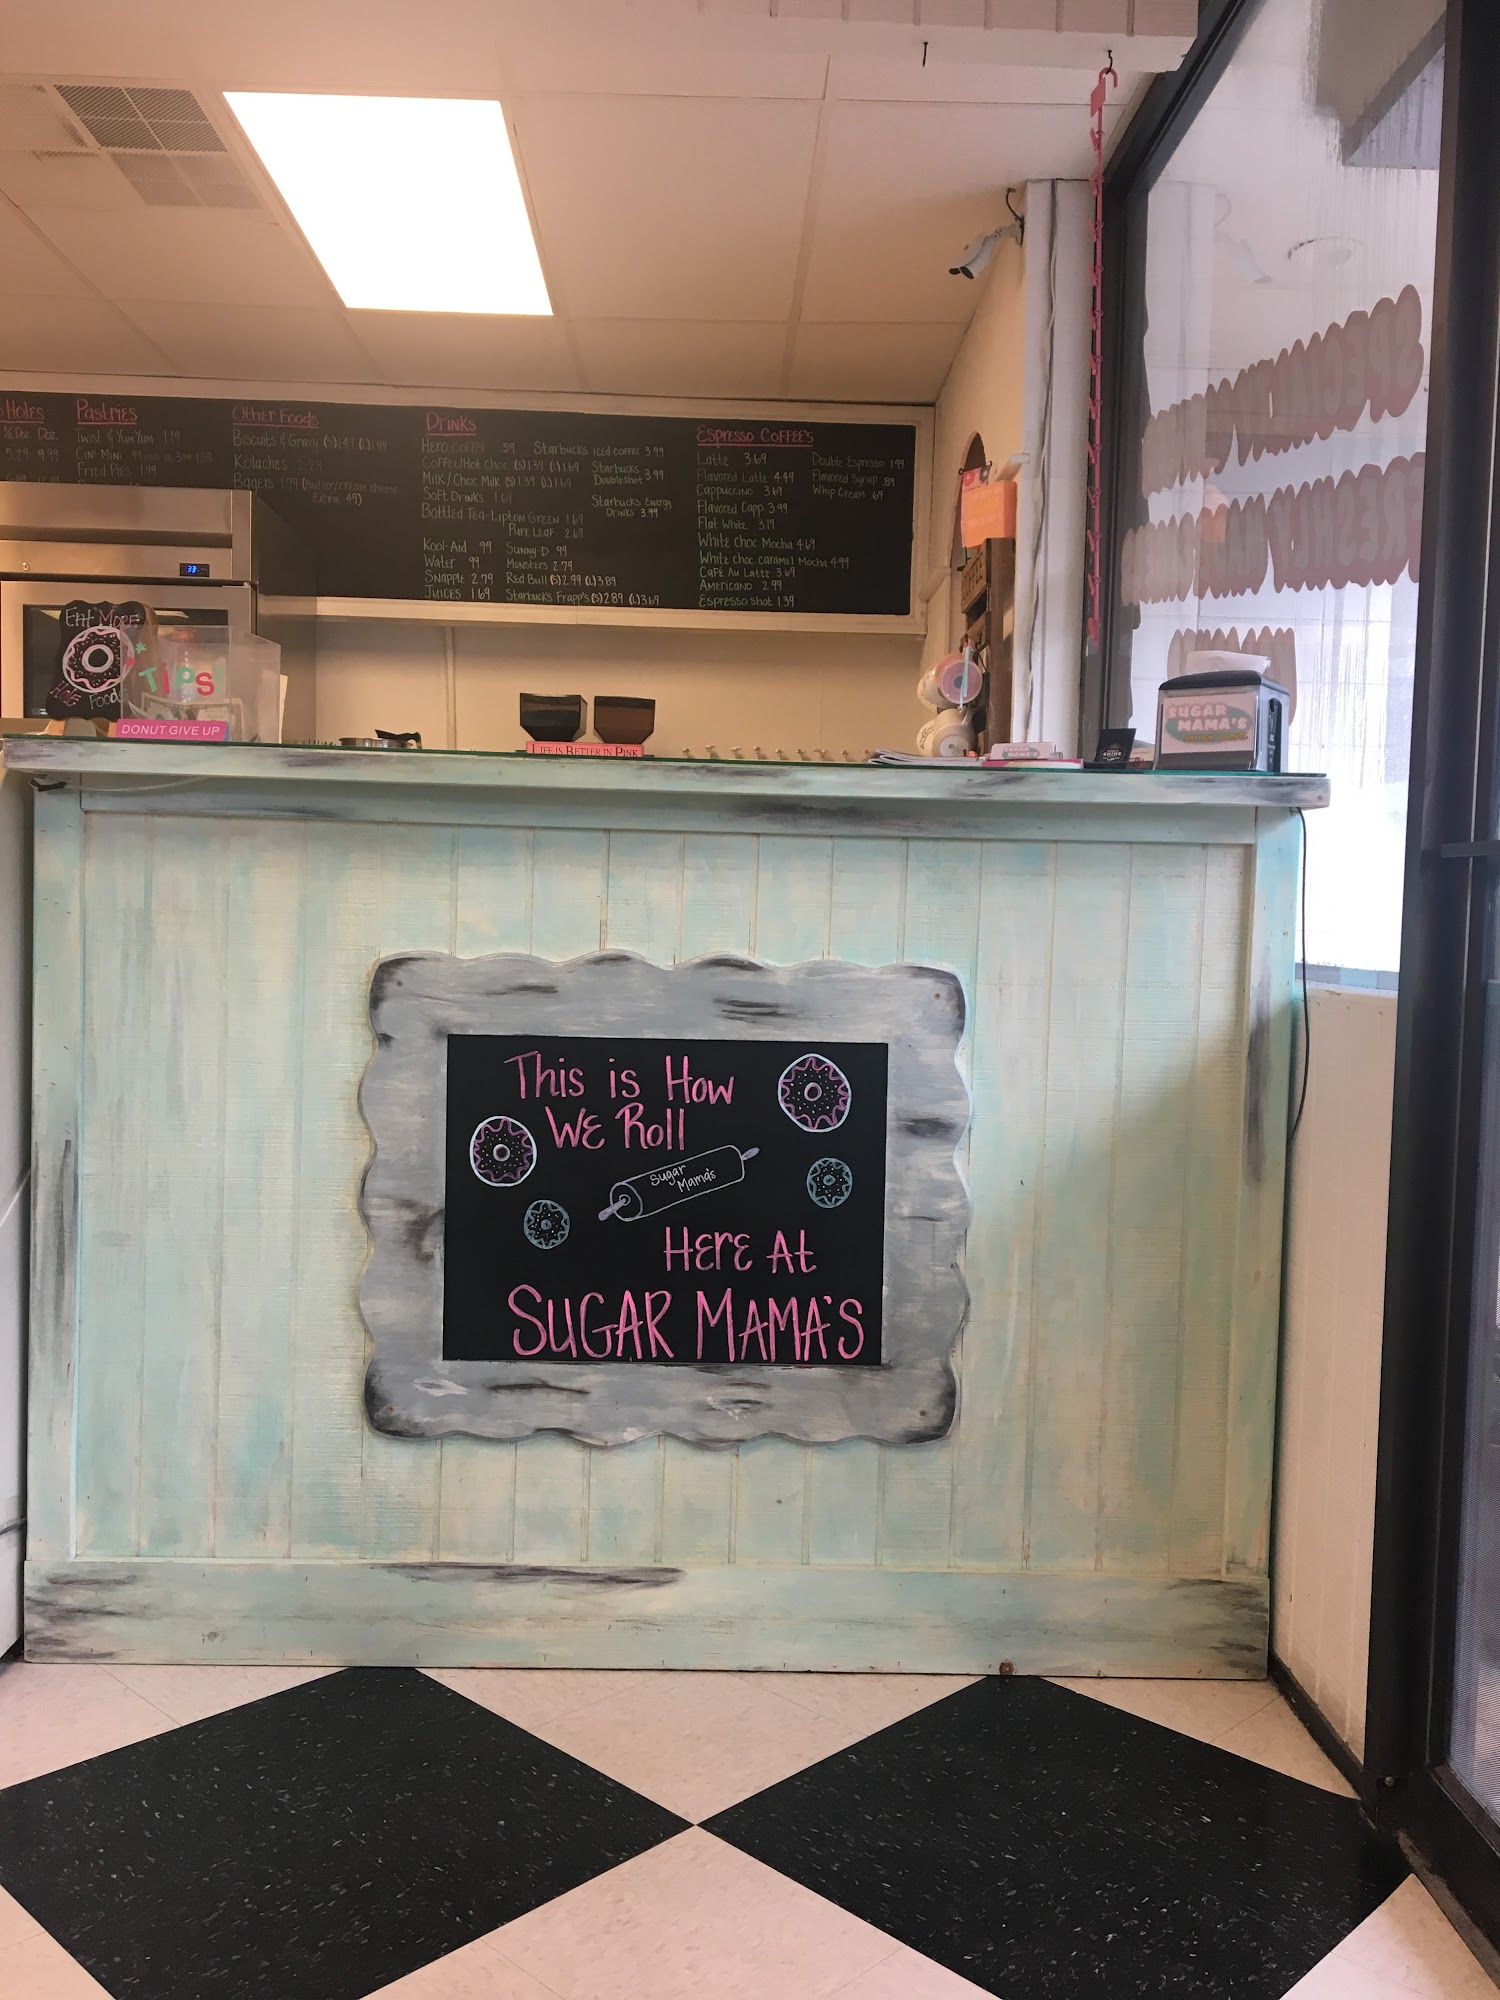 Holes
½ Doz. Doz.
5.29 9.99
Pastries
Twist & Yum Yum 1.19
Cini-Mini
Fried Pies 1.99
Other Foods
Biscuits & Gravy (S) 1.49 (L) 1.99
Kolaches 2.29
Bagels 1.79 (Butter/cream cheese
Extra .49)
Drinks
Hero Coffee .59
Coffee/Hot Choc (S) 1.39 (L) 1.69
Milk/Choc Milk (S) 1.39 (L) 1.69
Soft Drinks 1.69
Bottled Tea-Lipton Green 1.69
Pure Leaf 2.69
Kool-Aid .99
Water .99
Snapple 2.79
Juices 1.69
Sunny-D .99
Monsters 2.79
Red Bull (S) 2.99 (L) 3.89
Starbucks Frapp's (S) 2.89 (L) 3.69
Starbucks iced coffee 3.99
Starbucks
Doubleshot 3.99
Starbucks Energy
Drinks 3.99
Espresso Coffee's
Latte 3.69
Flavored Latte 4.49
Cappuccino 3.69
Flavored Capp 3.99
Flat White 3.19
White Choc Mocha 4.69
White choc caramel Mocha 4.99
Café Au Latte 3.69
Americano 2.99
Espresso shot 1.39
Double Espresso 1.99
Flavored Syrup .89
Whip Cream .69
33
Eat More
Hole
Foods
TiPS!
DONUT GIVE UP
Life is Better in Pink
COFFEE
SUGAR
MAMA'S
SUGAR
MAMA'S
SPECIALTY
FRESHLY
This is How
We Roll
Sugar
Mama's
Here At
Sugar Mama's